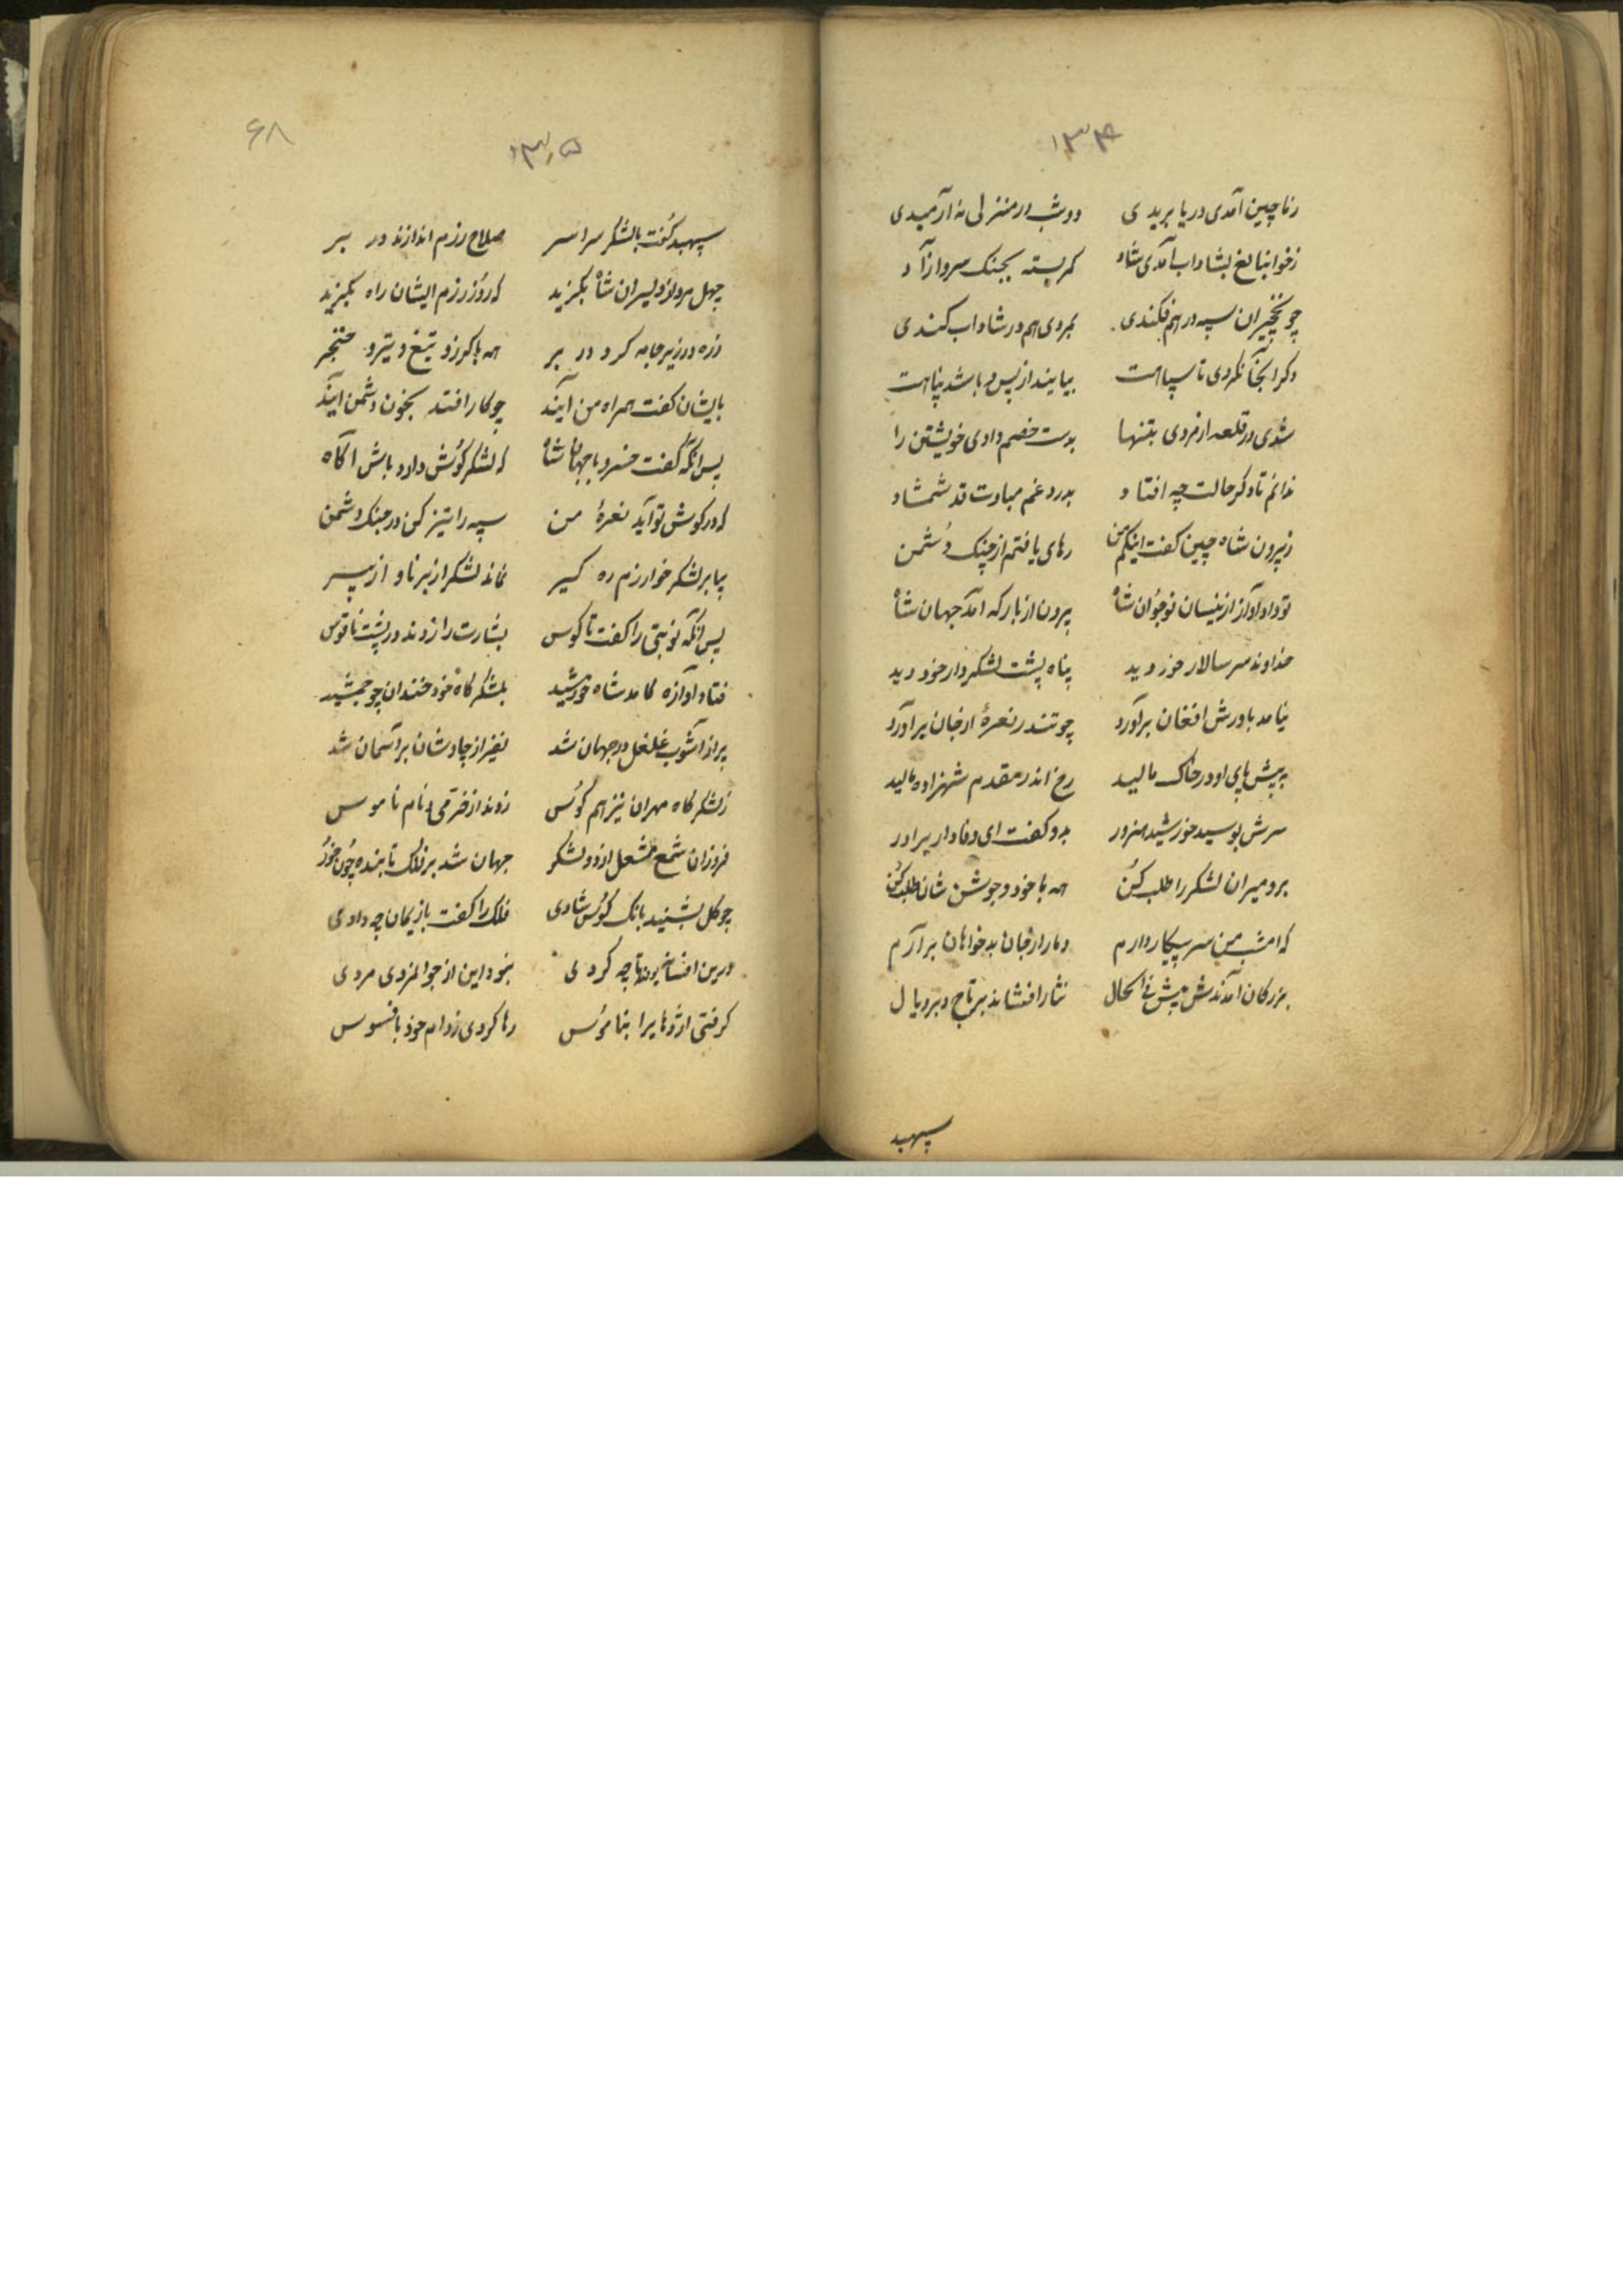 ۱۳۴
زماچین آمدی دریا بریدی دو شب در منزلی نه آرمیدی
بشاداب آمدی شاد کمر بسته بجنک سرو ازاد
چو نخچیران سپه در هم فکندی بمردی هم در شاداب کندی
دکر آنجا نکردی تا سپاهت بیایند از پس و باشد پناهت
شدی در قلعه از مردی بتنها بدست خصم دادی خویشتن را
ندانم تا دکر حالت چه افتاد بدرد غم مبادت قد شمشاد
زبیرون شاه چین کفت اینکم من رهای یافتم از چنک دشمن
تو داد آواز ازینسان نوجوان شاه برون از بارکه آمد جهان شاه
خداوند سر سالار خود دید پناه پشت لشکردار خود دید
نیامد باورش افغان برآورد چو تندر نعرهٔ از جان برآورد
به پیش پای او در خاک مالید رخ اندر مقدم شهزاده مالید
سرش بوسید خورشید هنرور بدو کفت ای وفادار برادر
برو میران لشکر را طلب کن همه با خود و جوشن شان طلب کن
که امشب من سر پیکار دارم دمار از جان بدخواهان برآرم
بزرکان آمدندش پیش فی الحال نثار افشاند بر تاج و بر و یال
سپهبد
۶۸
۱۳۵
سپهبد کفت با لشکر سراسر صلاح رزم اندازند در بر
چهل مرد از دلیران شاه بکزید که روز رزم ایشان راه بکیرید
زره در زیر جامه کرد در بر همه با کرز و تیغ و تیر و خنجر
بایشان کفت همراه من آیند چو کار افتد بخون دشمن آیند
پس آنکه کفت خسرو با جهان شاه که لشکر کوش دارد باش آکاه
که در کوش تو آید نعرهٔ من سپه را تیز کن در جنک دشمن
بیا بر لشکر خوارزم ره کیر نماند لشکر از برنا و از پیر
پس آنکه نوبتی را کفت تا کوس بشارت را زدند در پشت ناقوس
فتاد آوازه کامد شاه خورشید بلشکرکاه خود خندان چو جمشید
پر از آشوب غلغل در جهان شد نفیر از چاوشان بر آسمان شد
زلشکرکاه مهران نیز هم کوس زدند از خرمی و نام ناموس
فروزان شمع مشعل از دو لشکر جهان شد بر فلک تابنده چون خور
چو کل بشنید بانک کوس شادی فلک را کفت بازیمان چه دادی
درین افسانه چه کردی بنود این از جوانمردی مردی
کرفتی اژدهایرا بناموس رها کردی زدام خود بافسوس